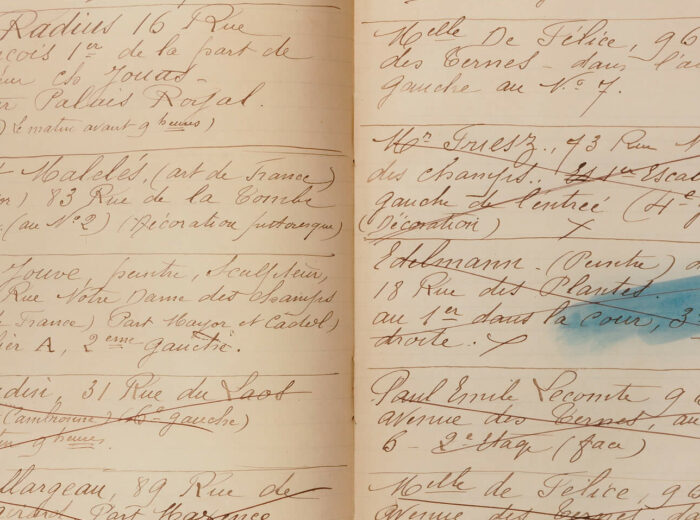 Radius 16 Rue
çois 1er de la part de
ch Jouas -
Palais Royal.
(le matin avant 9 heures)
Malclés, (art de France)
83 Rue de la Tombe
(au No 2) (Décoration pittoresque)
Jouve, peintre, Sculpteur,
Rue Notre Dame des Champs
France) Part Mayor et Cadel)
ier A, 2eme gauche.
31 Rue du Laos
(Cambronne) (6e gauche)
9 heures
llargeau, 89 Rue de
Part Maxence
Melle De Félice, 96
des Ternes - dans l'a
gauche au No 7.
Mr Friesz., 73 Rue N
des champs. 1er Escal
gauche de l'entrée (4e
(Décoration) X
Edelmann. (Peintre)
18 Rue des Plantes.
au 1er dans la cour, 3
droite. X
Paul Emile Lecomte 96
avenue des Ternes, au
6 - 2e étage (face)
Melle de Félice, 96
avenue des Ternes